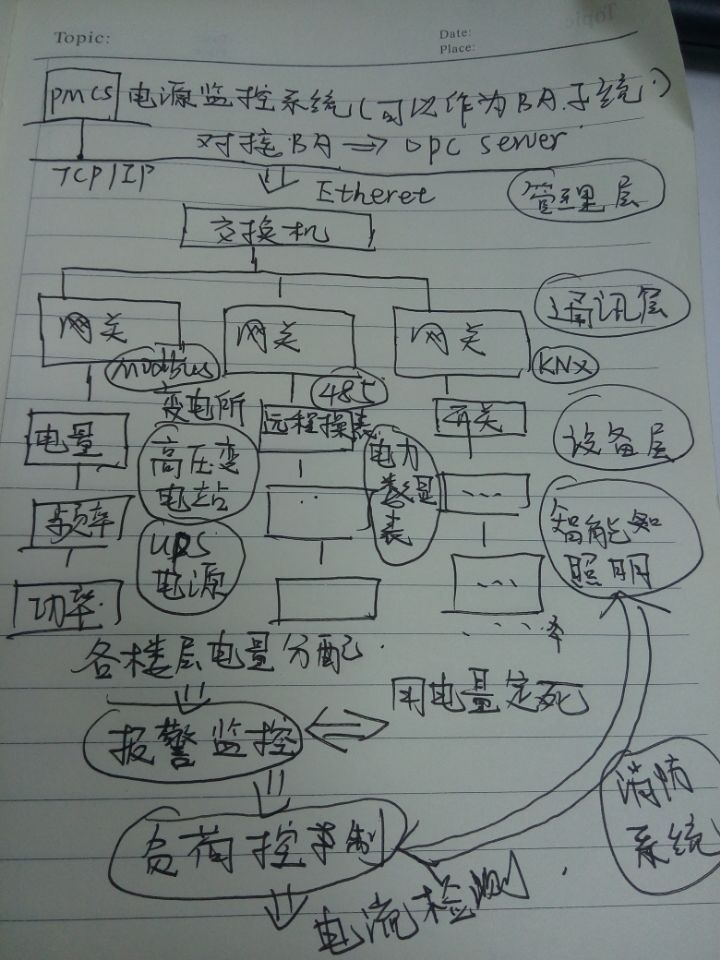 Topic:
Date:
Place:
PMCS 电源监控系统(可以作为BA子系统.)
对接BA → OPC server
TCP/IP
Etheret
管理层
交换机
通讯层
网关 网关 网关
modibus
485
KNX
变电所
电量
远程操表
开关
设备层
高压变
电站
电力
数显
表
频率
智能
照明
UPS
电源
功率
各楼层电量分配.
用电量定死
报警监控
负荷控制
消防
系统
电流检测.